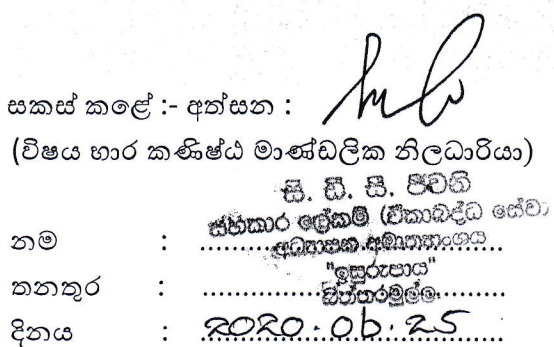 සකස් කළේ :- අත්සන :
(විෂය භාර කණිෂ්ඨ මාණ්ඩලික නිලධාරියා)
සී. ඩී. සී. ජීවනි
සහකාර ලේකම් (ඒකාබද්ධ සේවා)
නම : අධ්‍යාපන අමාත්‍යාංශය
"ඉසුරුපාය"
තනතුර : බත්තරමුල්ල.
දිනය : 2020.06.25